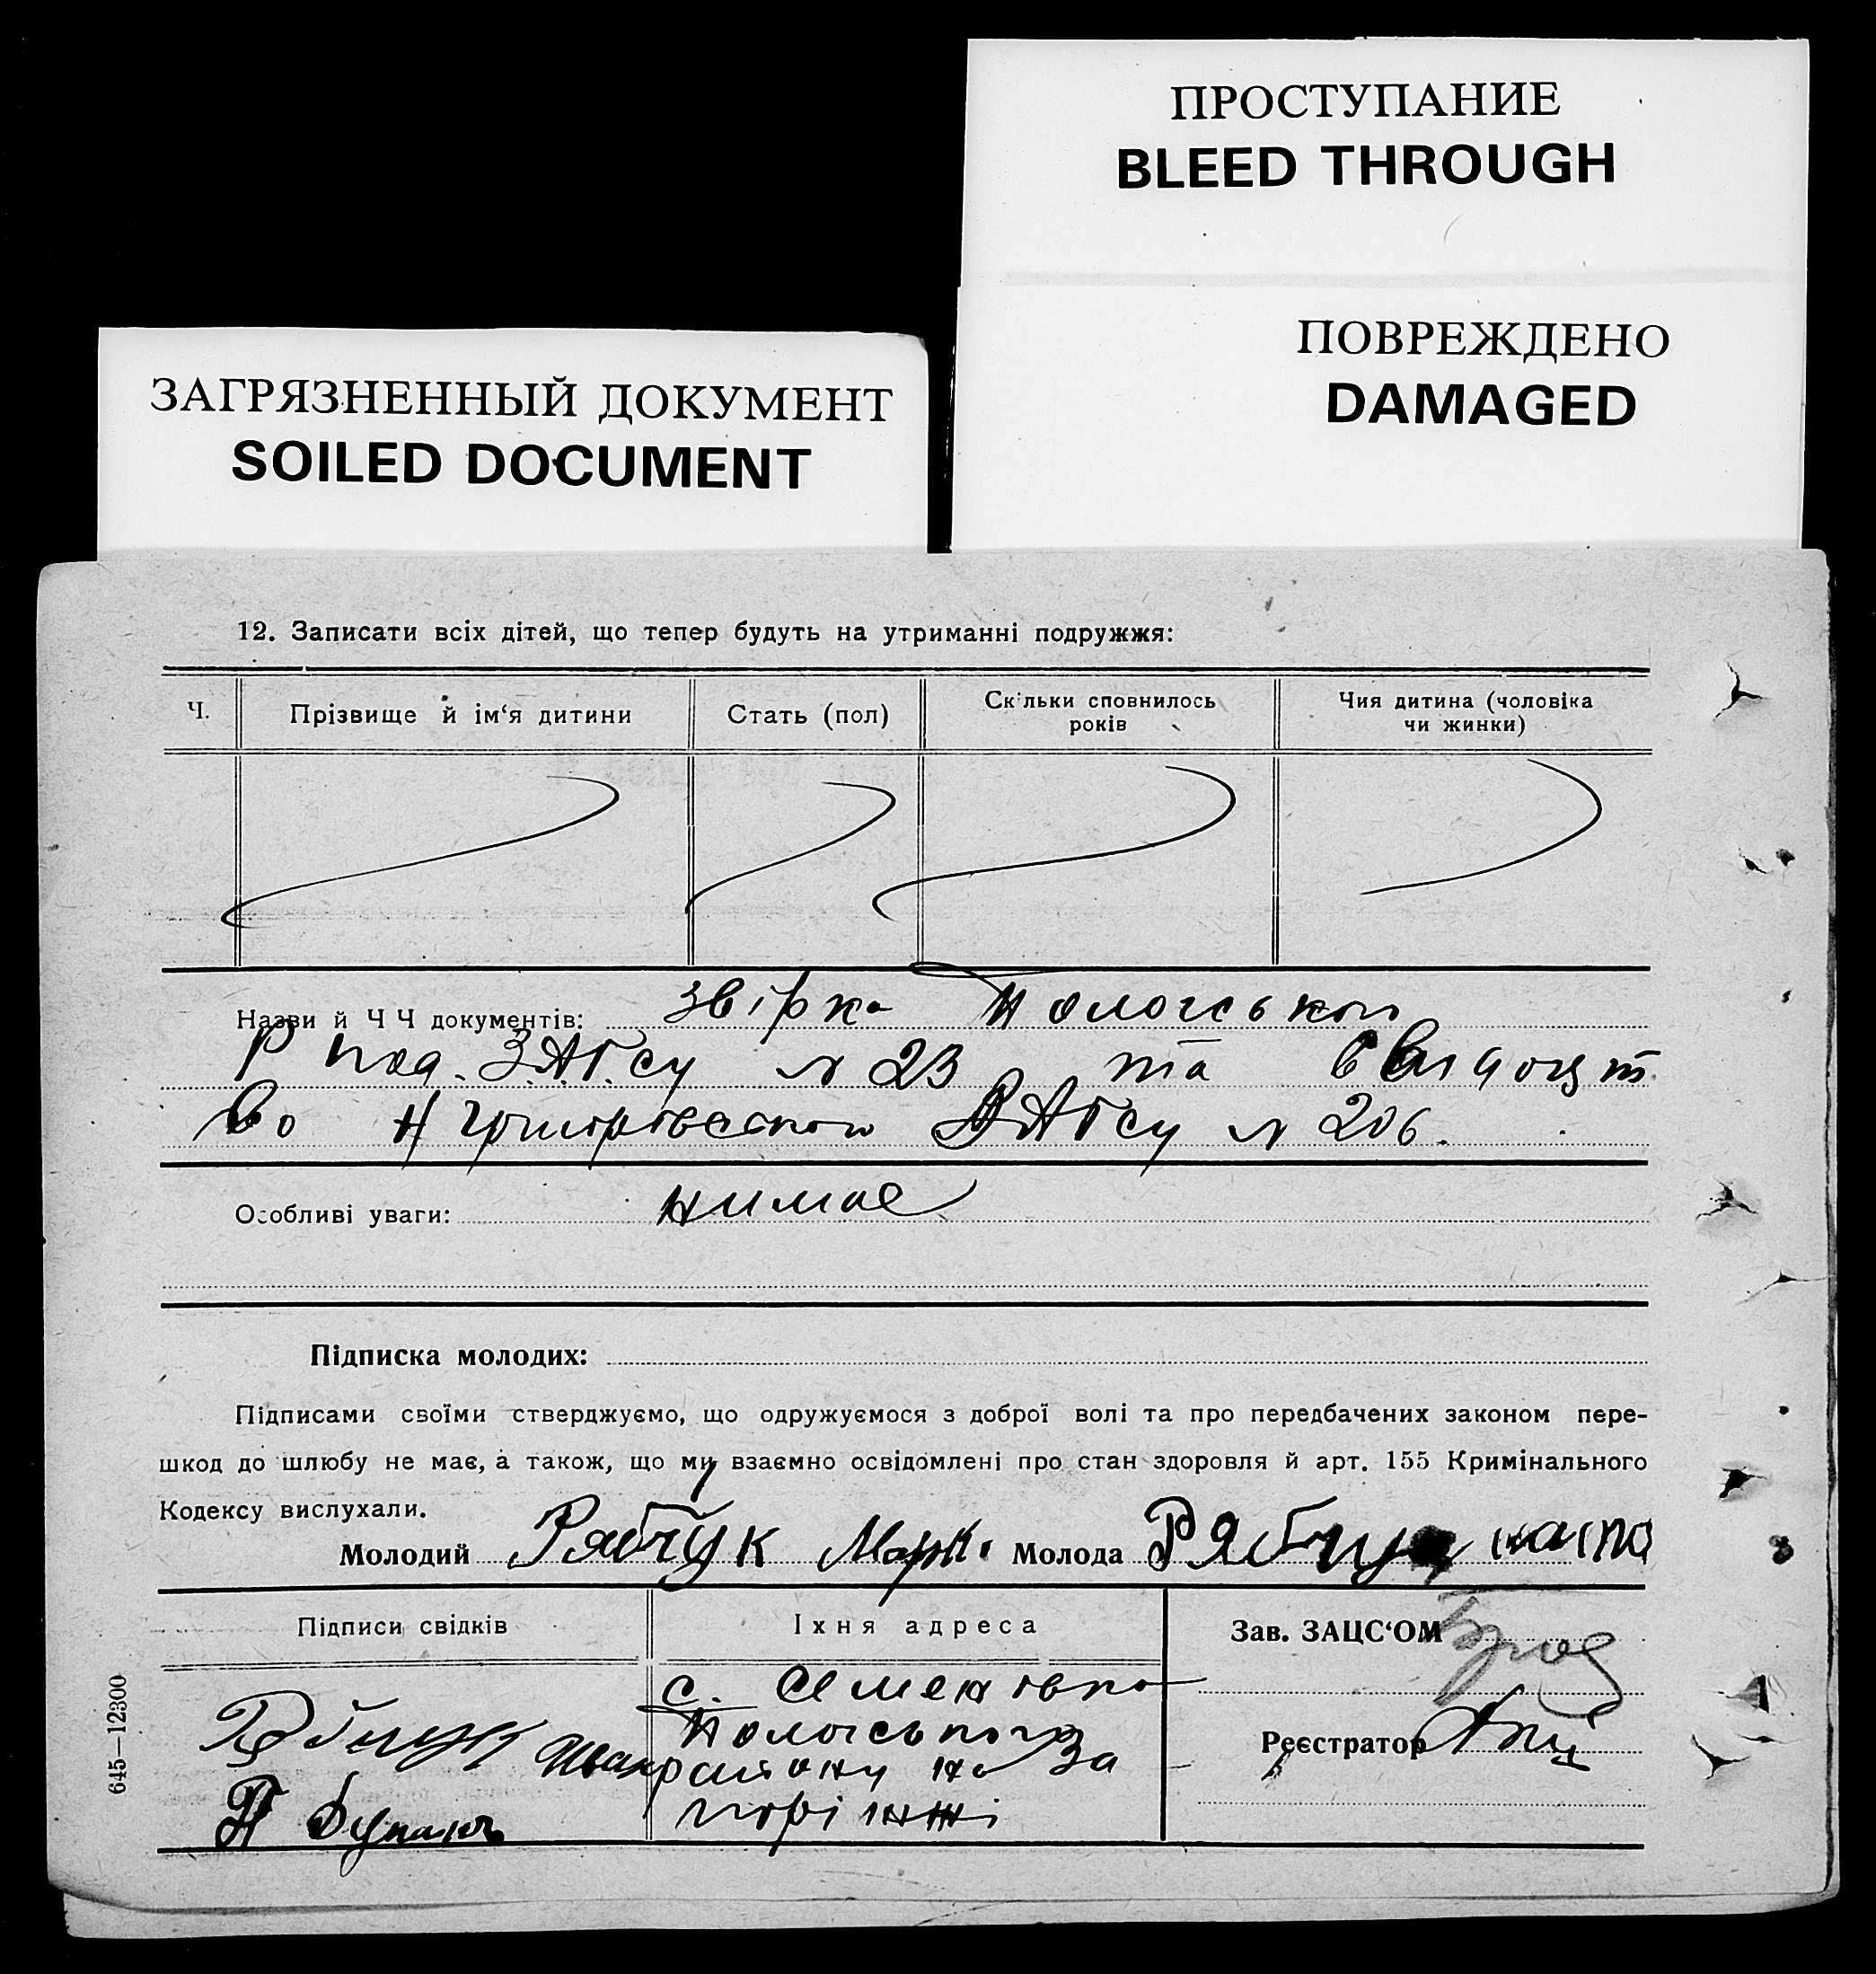 ПРОСТУПАНИЕ
BLEED THROUGH
ПОВРЕЖДЕНО
DAMAGED
ЗАГРЯЗНЕННЫЙ ДОКУМЕНТ
SOILED DOCUMENT
12. Записати всіх дітей, що тепер будуть на утриманні подружжя:
Ч.
Прізвище й ім‘я дитини
Стать (пол)
Скільки сповнилось
років
Чия дитина (чоловіка
чи жинки)
Назви й Ч Ч документів: звірка Пологського
Р ЗАГсу № 23 та свідоцт
во ЗАГсу № 206.
Особливі уваги: нимае
Підписка молодих:
Підписами своїми стверджуємо, що одружуємося з доброї волі та про передбачених законом пере-
шкод до шлюбу не має, а також, що ми взаємно освідомлені про стан здоровля й арт. 155 Кримінального
Кодексу вислухали.
Молодий Рябчук Марк. Молода Рябчук
Підписи свідків
Їхня адреса
Зав. ЗАЦС‘ОМ
с. Семенівка
Пологського
Иван
району на За
порі жжі
Реєстратор
645—12300